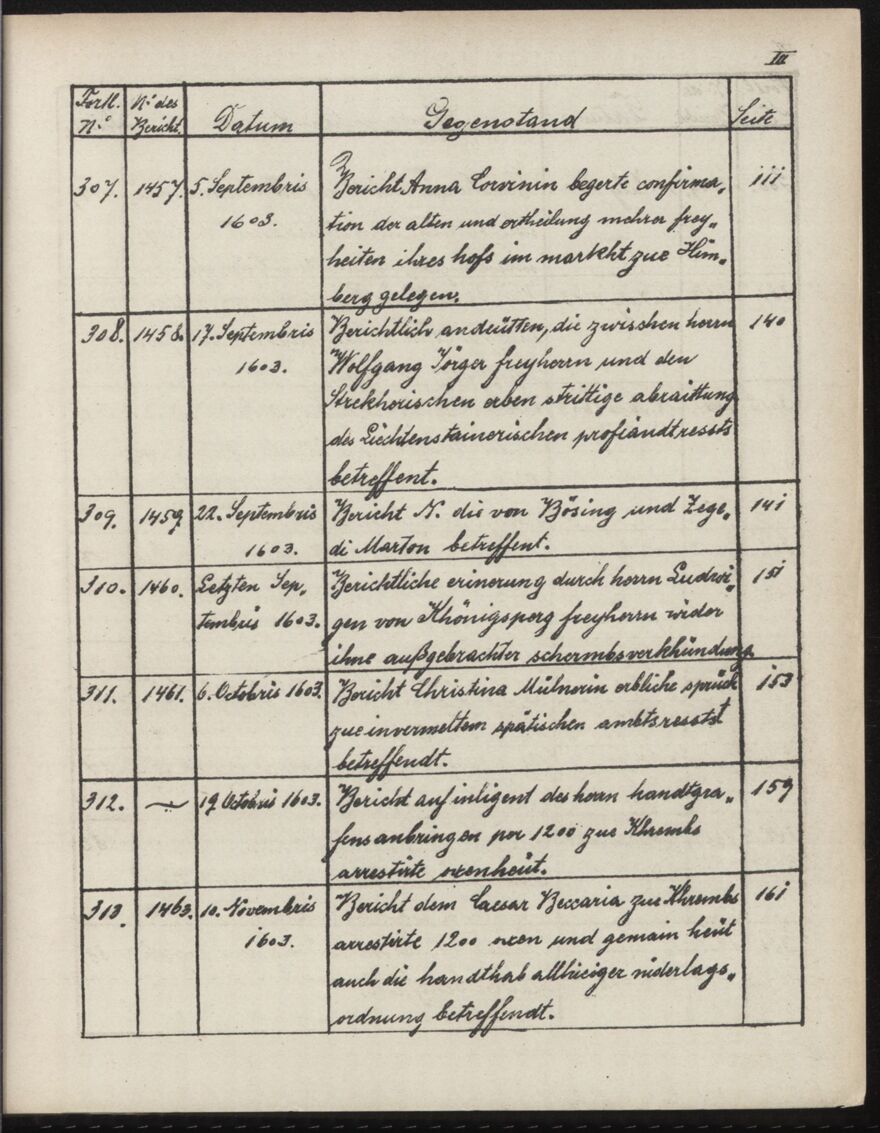 III
Fortl. N° des
N° Bericht. Datum Gegenstand Seite
307. 1457. 5. Septembris Bericht Anna Corvinin begerte confirma„ iii
1603. tion der alten und ertheilung mehrer frey„
heiten ihres hofs im markht zue Him„
berg gelegen.
308. 1458. 17. Septembris Berichtlich andeütten, die zwischen herrn 140
1603. Wolfgang Jörger freyherrn und den
Strekherischen erben strittige abraittung
des Liechtenstainerischen profiandtressts
betreffent.
309. 1459. 22. Septembris Bericht N. die von Bösing und Zege„ 141
1603. di Marton betreffent.
310. 1460. Letzten Sep„ Berichtliche erinerung durch herrn Ludwi„ 151
tembris 1603. gen von Khönigsperg freyherrn wider
ihne außgebrachter schermbsverkhündung.
311. 1461. 6. Octobris 1603. Bericht Christina Mülnerin erbliche sprüch 153
zue invermeltem spätischen ambtsressts
betreffendt.
312. — 19 Octobris 1603. Bericht auf inligent des herrn handtgra„ 159
fens anbringen per 1200 zue Khrembs
arrestirte oxenheüt.
313. 1463. 10. Novembris Bericht dem Caesar Beccaria zue Khrembs 161
1603. arrestirte 1200 oxen und gemain heüt
auch die handthab allhieiger niderlags„
ordnung betreffendt.